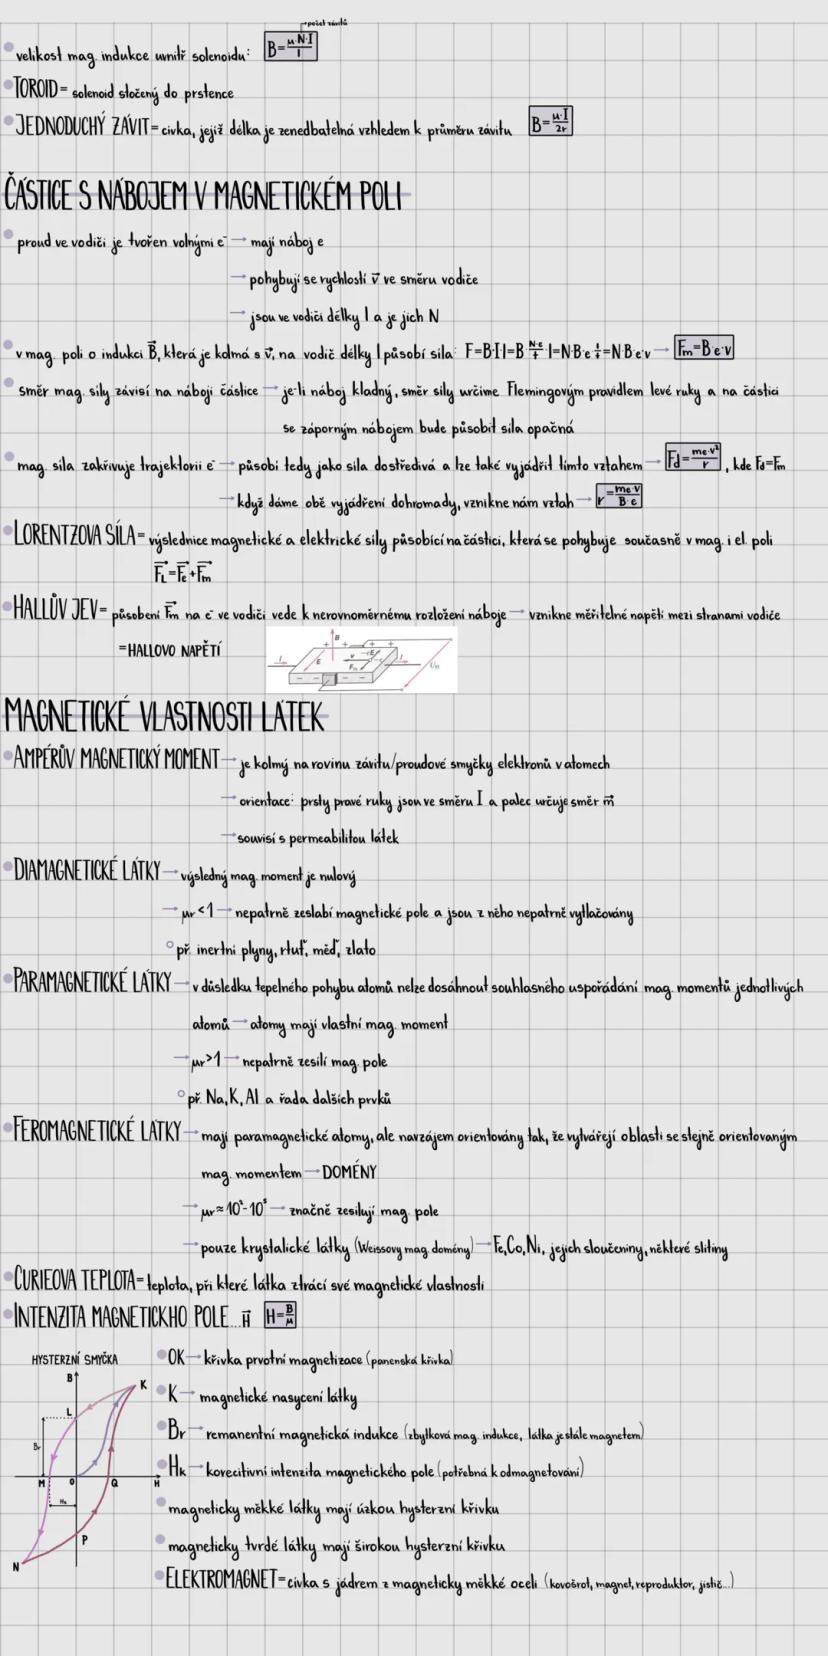 počet závitů
velikost mag. indukce uvnitř solenoidu: B=μ·N·I/l
TOROID= solenoid stočený do prstence
JEDNODUCHÝ ZÁVIT= cívka, jejíž délka je zenedbatelná vzhledem k průměru závitu B=μ·I/2r
ČÁSTICE S NÁBOJEM V MAGNETICKÉM POLI
proud ve vodiči je tvořen volnými e⁻ → mají náboj e
→ pohybují se rychlostí v⃗ ve směru vodiče
→ jsou ve vodiči délky l a je jich N
v mag. poli o indukci B⃗, která je kolmá s v⃗, na vodič délky l působí síla: F=B·I·l=B·N·e/t·l=N·B·e·l/t=N·B·e·v → Fm=B·e·v
směr mag. síly závisí na náboji částice → je-li náboj kladný, směr síly určíme Flemingovým pravidlem levé ruky a na částici
se záporným nábojem bude působit síla opačná
mag. síla zakřivuje trajektorii e⁻ → působí tedy jako síla dostředivá a lze také vyjádřit tímto vztahem → Fd=me·v²/r, kde Fd=Fm
→ když dáme obě vyjádření dohromady, vznikne nám vztah → r=me·v/B·e
LORENTZOVA SÍLA= výslednice magnetické a elektrické síly působící na částici, která se pohybuje současně v mag. i el. poli
F⃗L=F⃗e+F⃗m
HALLŮV JEV= působení F⃗m na e⁻ ve vodiči vede k nerovnoměrnému rozložení náboje → vznikne měřitelné napětí mezi stranami vodiče
=HALLOVO NAPĚTÍ
B
I E v Fm I UH
MAGNETICKÉ VLASTNOSTI LÁTEK
AMPÉRŮV MAGNETICKÝ MOMENT → je kolmý na rovinu závitu/proudové smyčky elektronů v atomech
→ orientace: prsty pravé ruky jsou ve směru I a palec určuje směr m⃗
→ souvisí s permeabilitou látek
DIAMAGNETICKÉ LÁTKY → výsledný mag. moment je nulový
→ μr<1 → nepatrně zeslabí magnetické pole a jsou z něho nepatrně vytlačovány
př. inertní plyny, rtuť, měď, zlato
PARAMAGNETICKÉ LÁTKY → v důsledku tepelného pohybu atomů nelze dosáhnout souhlasného uspořádání mag. momentů jednotlivých
atomů → atomy mají vlastní mag. moment
→ μr>1 → nepatrně zesílí mag. pole
př. Na, K, Al a řada dalších prvků
FEROMAGNETICKÉ LÁTKY → mají paramagnetické atomy, ale navzájem orientovány tak, že vytvářejí oblasti se stejně orientovaným
mag. momentem → DOMÉNY
→ μr≈10²-10⁵ → značně zesilují mag. pole
→ pouze krystalické látky (Weissovy mag. domény) → Fe, Co, Ni, jejich sloučeniny, některé slitiny
CURIEOVA TEPLOTA= teplota, při které látka ztrácí své magnetické vlastnosti
INTENZITA MAGNETICKHO POLE... H⃗ H=B/μ
HYSTERZNÍ SMYČKA
B
K
L
Br
M O Q H
Hk
P
N
OK → křivka prvotní magnetizace (panenská křivka)
K → magnetické nasycení látky
Br → remanentní magnetická indukce (zbytková mag. indukce, látka je stále magnetem)
Hk → korecitivní intenzita magnetického pole (potřebná k odmagnetování)
magneticky měkké látky mají úzkou hysterzní křivku
magneticky tvrdé látky mají širokou hysterzní křivku
ELEKTROMAGNET= cívka s jádrem z magneticky měkké oceli (kovošrot, magnet, reproduktor, jistič...)